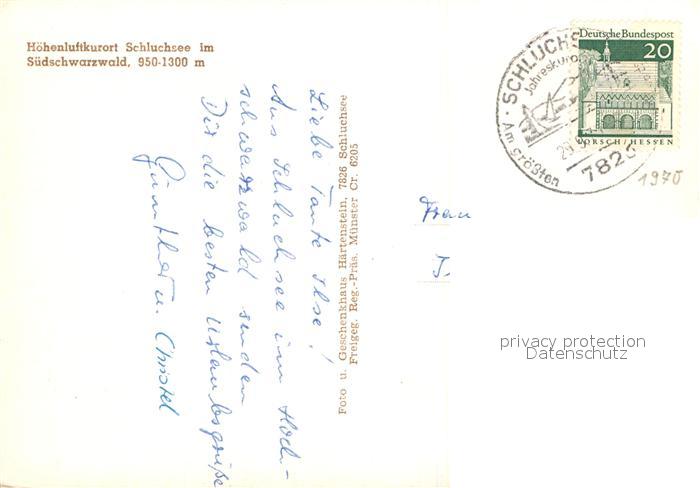 Höhenluftkurort Schluchsee im
Südschwarzwald, 950-1300 m
Liebe Tante Ilse!
Aus Schluchsee im Hoch-
schwarzwald senden
Dir die besten Urlaubsgrüße
Günther u. Christel
Foto u. Geschenkhaus Härtenstein, 7826 Schluchsee
Freigeg. Reg.-Präs. Münster Cr. 6205
SCHLUCHS
Jahreskuro
Am größten
29
7826
Deutsche Bundespost
20
LORSCH/HESSEN
1970
Frau
I.
privacy protection
Datenschutz